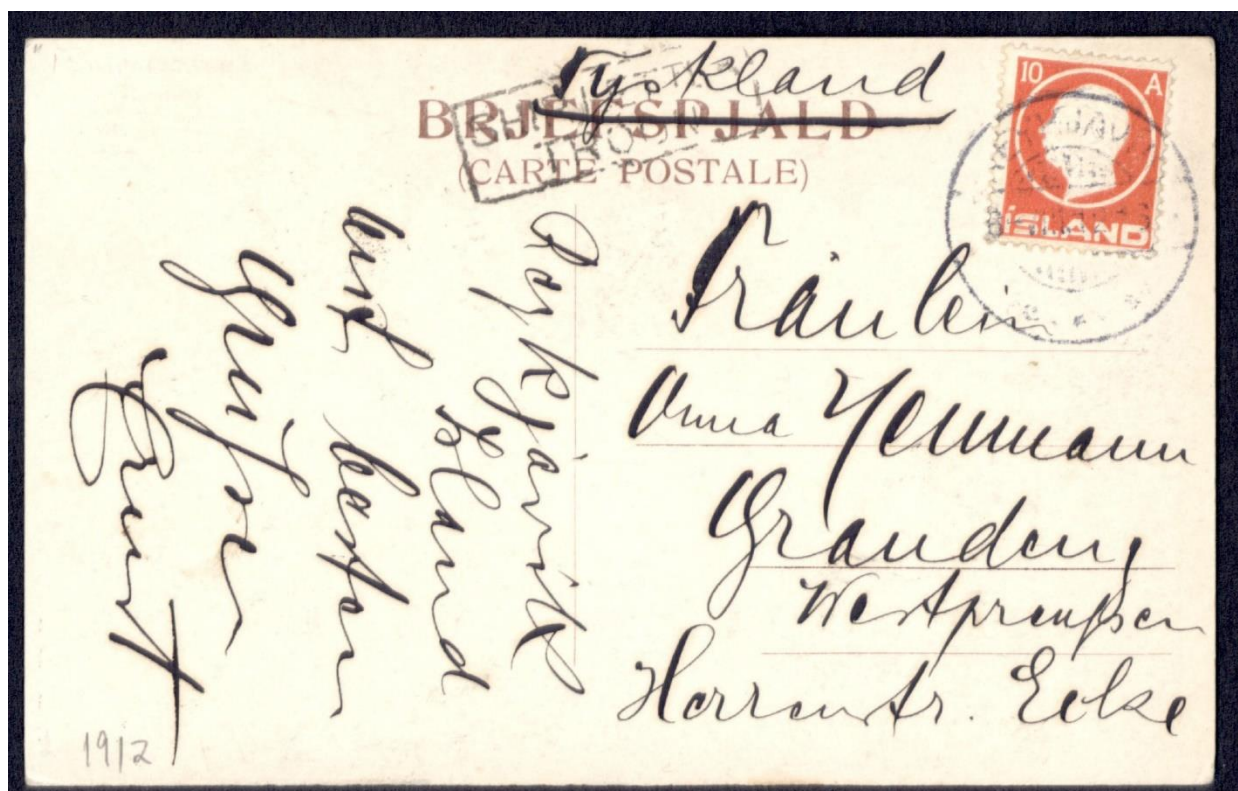 Tyskland
BRJEFSPJALD
(CARTE POSTALE)
10 A
ÍSLAND
Fräulein
Anna Heumann
Graudenz
Westpreußen
Herrenstr. Ecke
Reykjavik
Island
mit besten
Grüßen
Ernst
1912